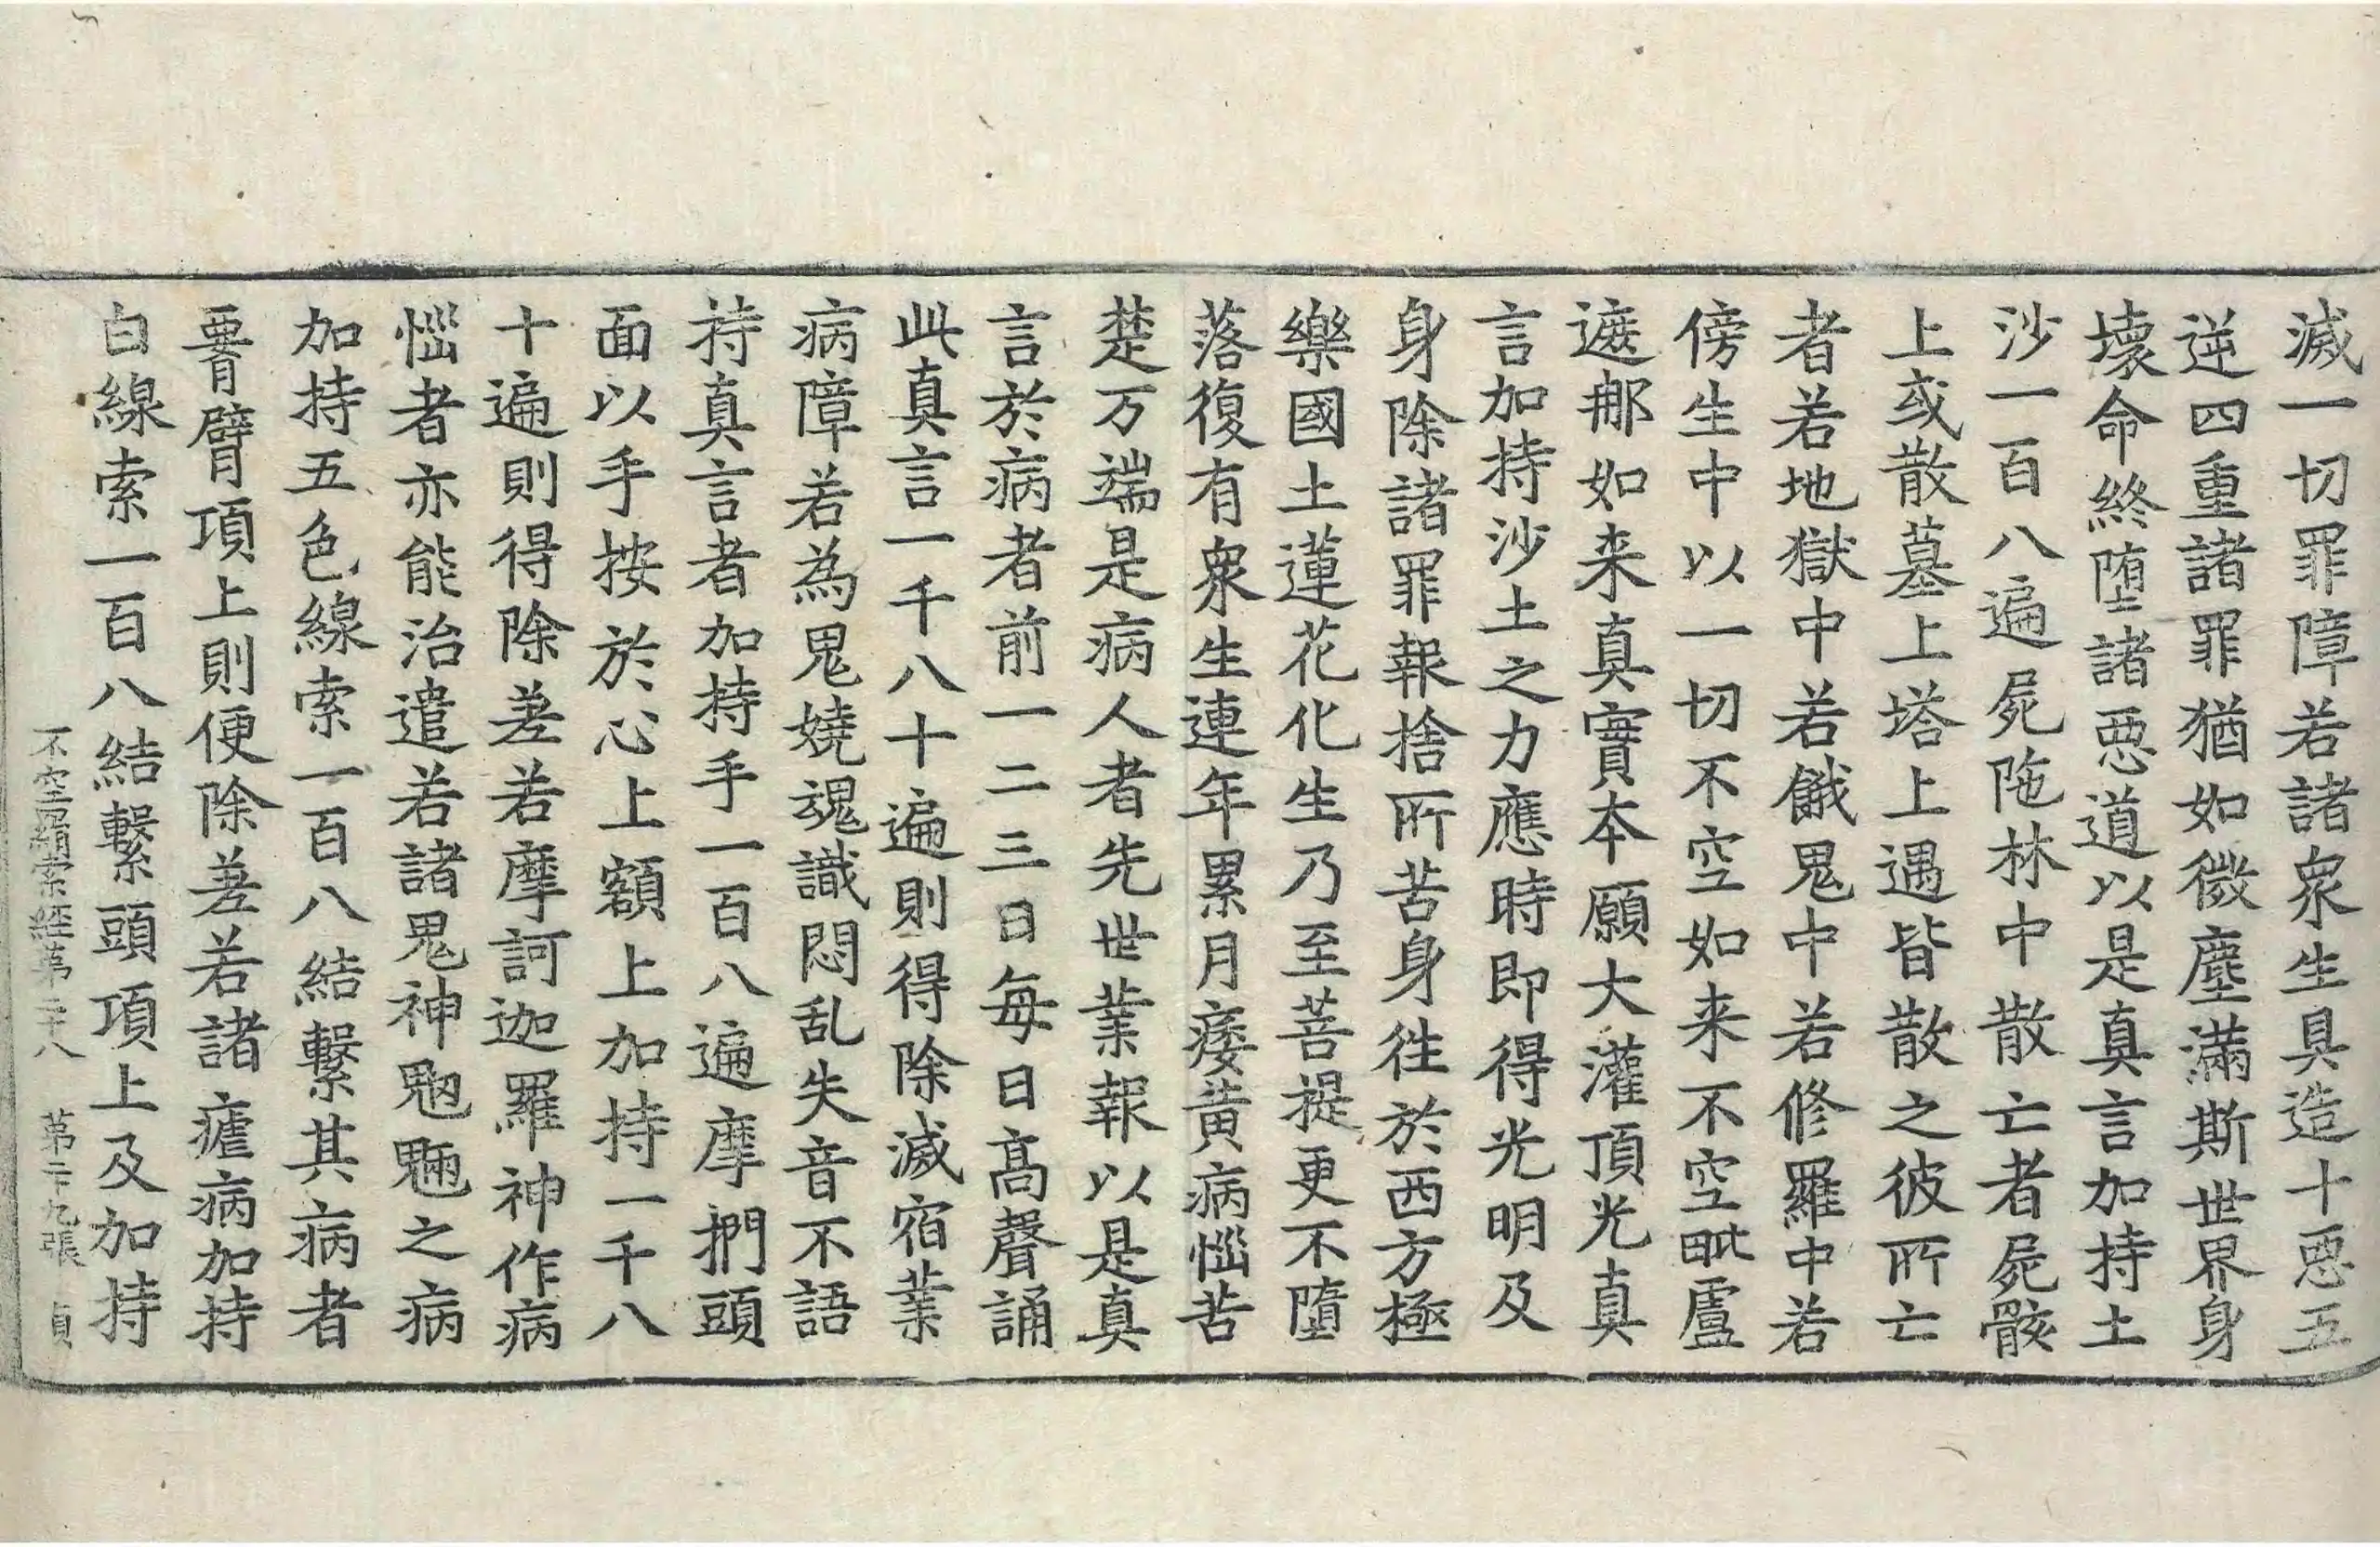 滅一切罪障若諸衆生具造十惡五
逆四重諸罪猶如微塵滿斯世界身
壞命終墮諸惡道以是真言加持土
沙一百八遍屍陁林中散亡者屍骸
上或散墓上塔上遇皆散之彼所亡
者若地獄中若餓鬼中若修羅中若
傍生中以一切不空如来不空毗盧
遮那如来真實本願大灌頂光真
言加持沙土之力應時即得光明及
身除諸罪報捨所苦身往於西方極
樂國土蓮花化生乃至菩提更不墮
落復有衆生連年累月痿黃病惱苦
楚万端是病人者先世業報以是真
言於病者前一二三日每日高聲誦
此真言一千八十遍則得除滅宿業
病障若為鬼嬈魂識悶乱失音不語
持真言者加持手一百八遍摩捫頭
面以手按於心上額上加持一千八
十遍則得除差若摩訶迦羅神作病
惱者亦能治遣若諸鬼神魍魎之病
加持五色線索一百八結繫其病者
𦝫臂項上則便除差若諸瘧病加持
白線索一百八結繫頭項上及加持
不空羂索經第二十八 第二十九張 貞